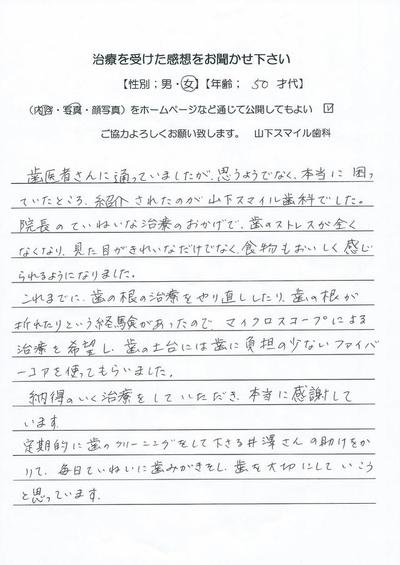 治療を受けた感想をお聞かせ下さい
【性別；男・女】【年齢；50才代】
（内容・写真・顔写真）をホームページなど通じて公開してもよい ☑
ご協力よろしくお願い致します。 山下スマイル歯科
歯医者さんに通っていましたが、思うようでなく、本当に困っ
ていたところ、紹介されたのが山下スマイル歯科でした。
院長のていねいな治療のおかげで、歯のストレスが全く
なくなり、見た目がきれいなだけでなく、食物もおいしく感じ
られるようになりました。
これまでに、歯の根の治療をやり直ししたり、歯の根が
折れたりという経験があったので、マイクロスコープによる
治療を希望し、歯の土台には歯に負担の少ないファイバ
ーコアを使ってもらいました。
納得のいく治療をしていただき、本当に感謝して
います。
定期的に歯のクリーニングをして下さる井澤さんの助けをか
りて、毎日ていねいに歯みがきをし、歯を大切にしていこう
と思っています。